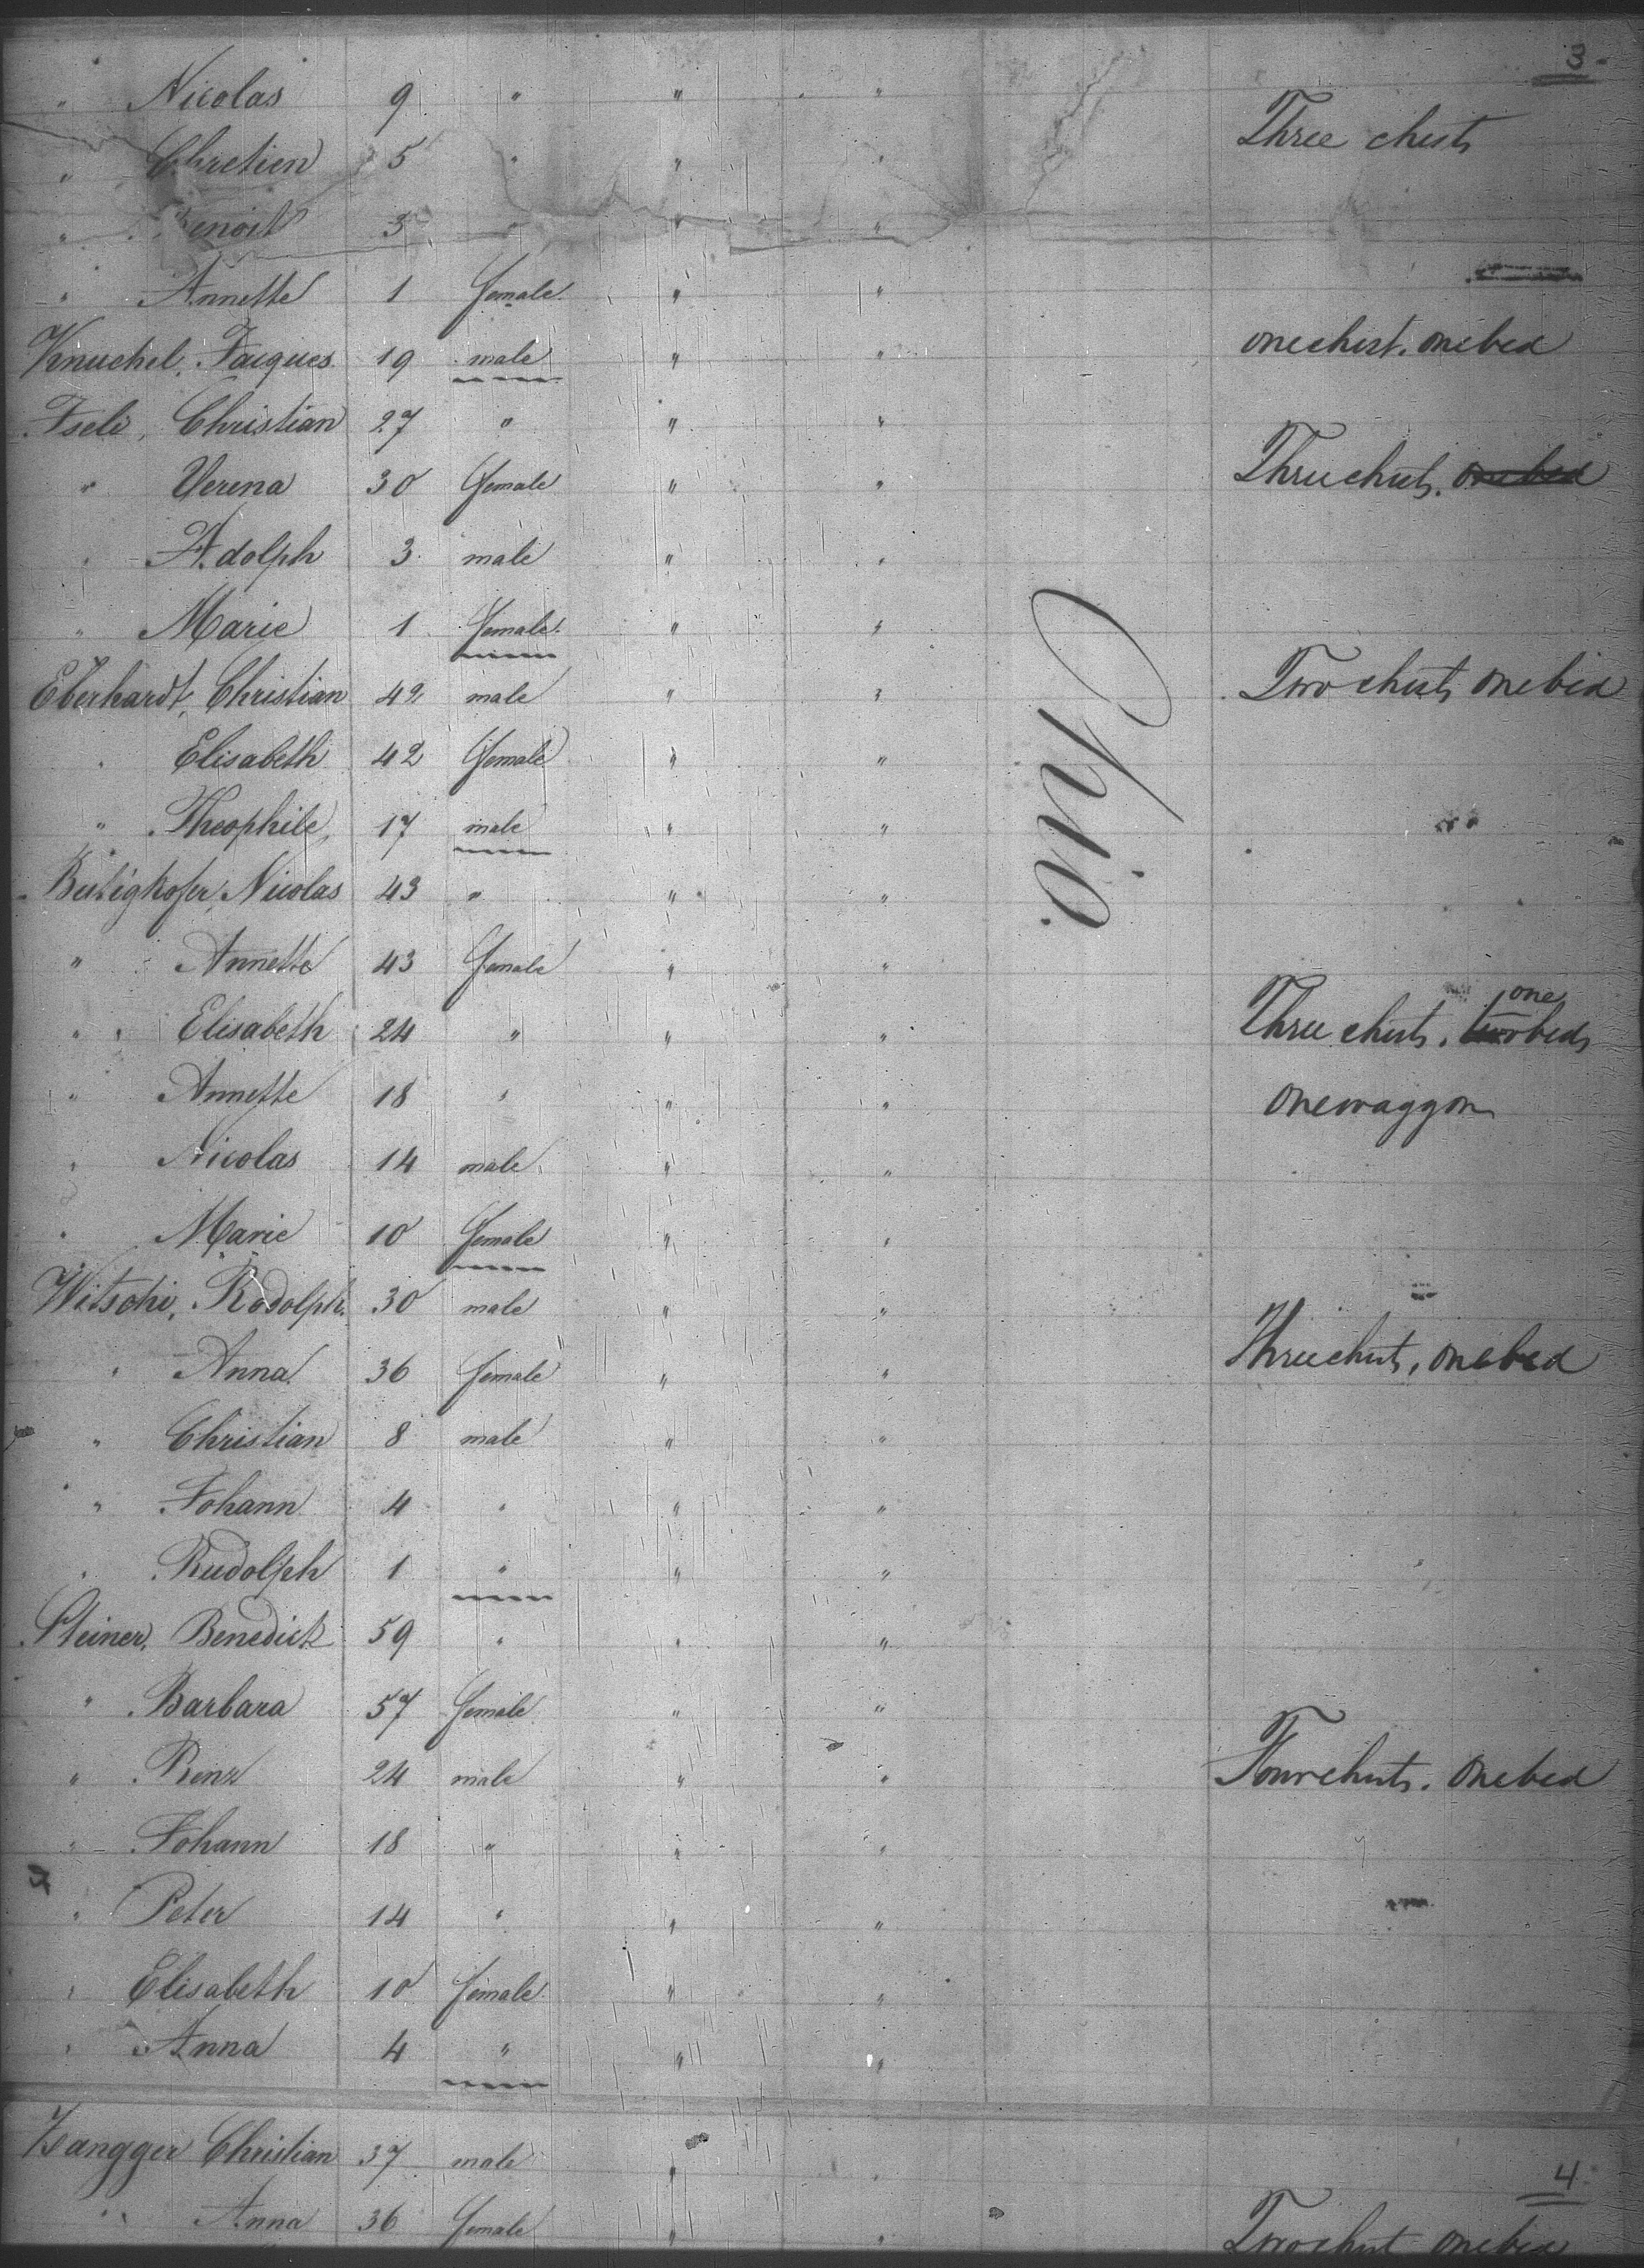 3
" Nicolas 9 " " "
Three chests
" Chretien 5 " " "
" Benoit 3 " " "
" Annette 1 female " "
Knuchel, Jacques 19 male " " one chest. one bed
Iseli, Christian 27 " " "
" Verena 30 female " " Three chests. one bed
" Adolph 3 male " "
" Marie 1 female " "
Eberhardt, Christian 42 male " " Two chests one bed
" Elisabeth 42 female " "
" Theophile 17 male " "
Ohio.
Bütigkofer, Nicolas 43 " " "
" Annette 43 female " "
one
" Elisabeth 24 " " " Three chests. two beds
" Annette 18 " " " one waggon
" Nicolas 14 male " "
" Marie 10 female " "
Witschi, Rodolph. 30 male " "
" Anna 36 female " " Three chests, one bed
" Christian 8 male " "
" Johann 4 " " "
" Rudolph 1 " " "
Steiner, Benedick 59 " " "
" Barbara 57 female " "
" Benz 24 male " " Four chests. one bed
" Johann 18 " " "
" Peter 14 " " "
" Elisabeth 10 female " "
" Anna 4 " " "
Zangger Christian 37 male " "
4
" Anna 36 female " " Two chest one bed